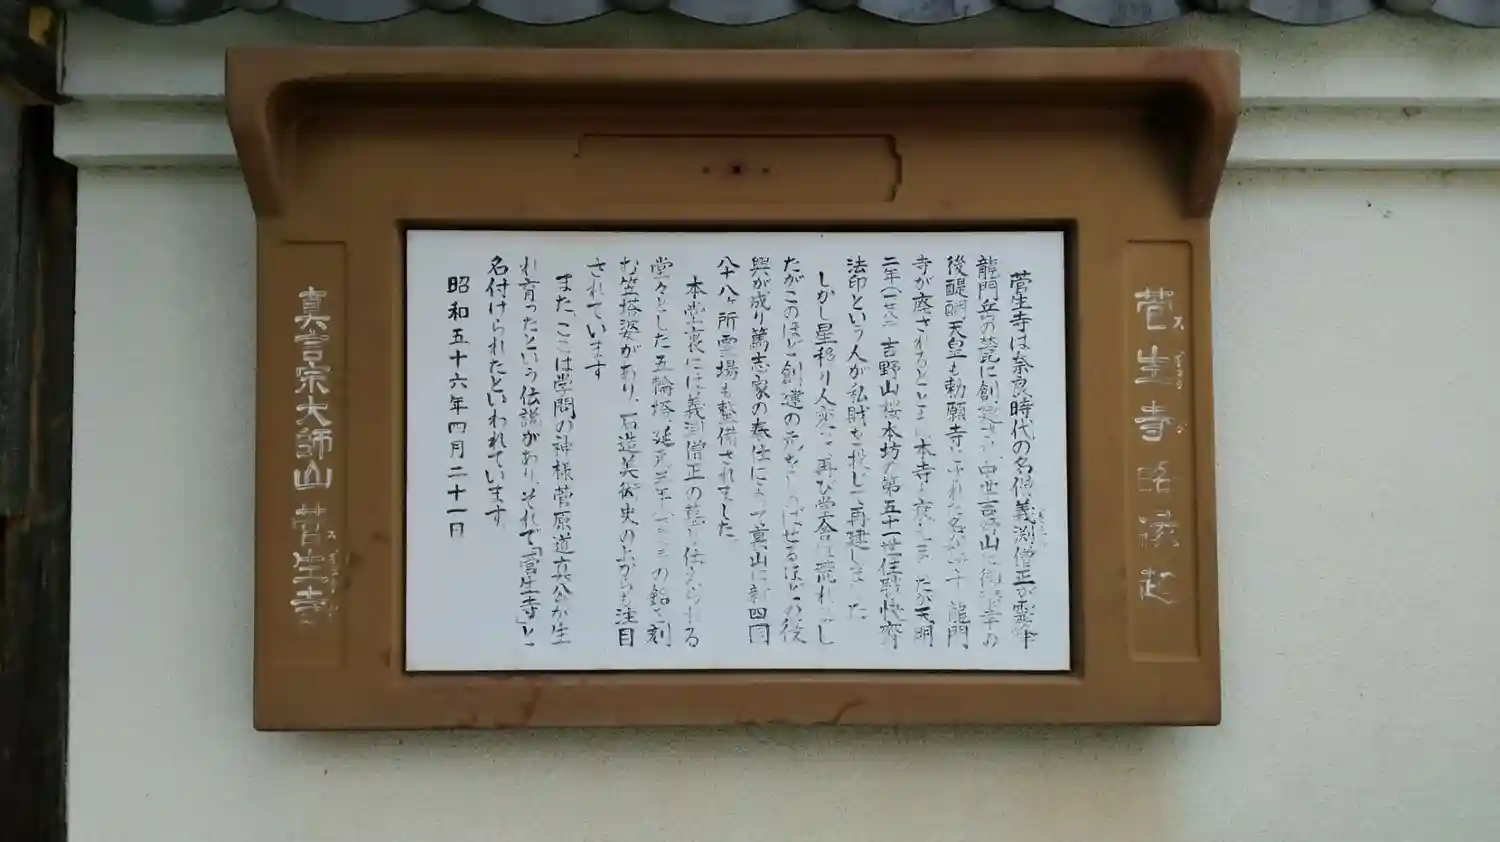 菅生寺略縁起
菅生寺は奈良時代の名僧義渕僧正が霊峰
龍門岳の麓に創建され中世吉野山に御潜幸の
後醍醐天皇も勅願寺に 名 龍門
寺が廃されるとともに本寺も たが天明
二年 吉野山桜本坊の第五十一世住職快齊
法印という人が私財を投じて再建しました
しかし星移り人変って再び堂舎は荒れまし
たがこのほど創建の をしのばせるほどの復
興が成り篤志家の奉仕によって裏山に新四国
八十八ヶ所霊場も整備されました
本堂裏には義渕僧正の墓と伝えられる
堂々とした五輪塔、延元 年 の銘を刻
む笠塔婆があり、石造美術史の上からも注目
されています
また、ここは学問の神様菅原道真公が生
れ育ったという伝説があり、それで「菅生寺」と
名付けられたといわれています
昭和五十六年四月二十一日
真言宗大師山菅生寺